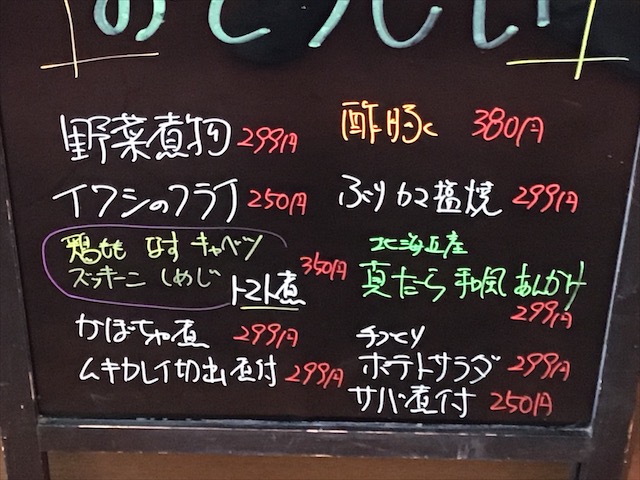 野菜煮物 299円
イワシのフライ 250円
鶏もも なす キャベツ
ズッキーニ しめじ
トマト煮 350円
かぼちゃ煮 299円
ムキカレイ切出煮付 299円
酢豚 380円
ぶりカマ塩焼 299円
北海道産
真たら和風あんかけ
299円
手づくり
ポテトサラダ 299円
サバ煮付 250円